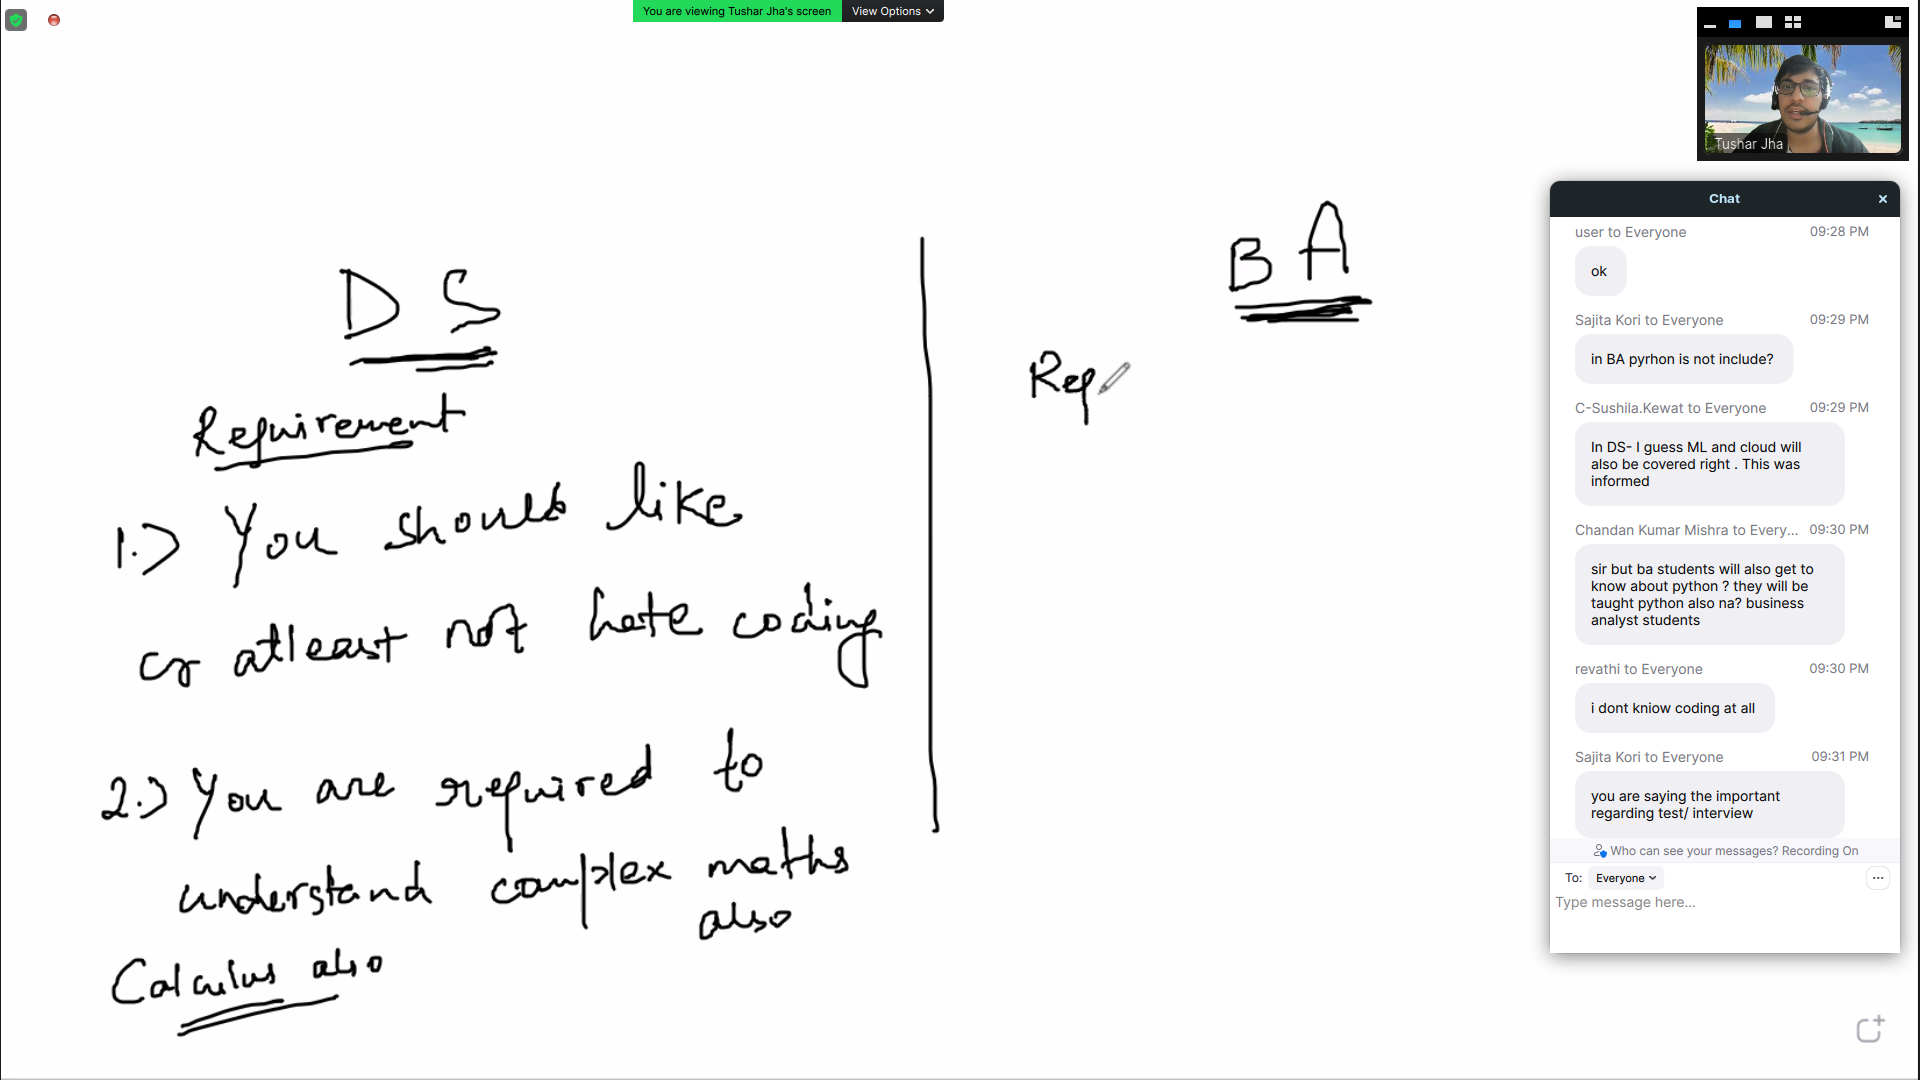 You are viewing Tushar Jha's screen View Options
Tushar Jha
D S
Requirement
1.) You should like
or atleast not hate coding
2.) You are required to
understand complex maths
also
Calculus also
B A
Req
Chat
user to Everyone 09:28 PM
ok
Sajita Kori to Everyone 09:29 PM
in BA pyrhon is not include?
C-Sushila.Kewat to Everyone 09:29 PM
In DS- I guess ML and cloud will
also be covered right . This was
informed
Chandan Kumar Mishra to Every... 09:30 PM
sir but ba students will also get to
know about python ? they will be
taught python also na? business
analyst students
revathi to Everyone 09:30 PM
i dont kniow coding at all
Sajita Kori to Everyone 09:31 PM
you are saying the important
regarding test/ interview
Who can see your messages? Recording On
To: Everyone
Type message here...